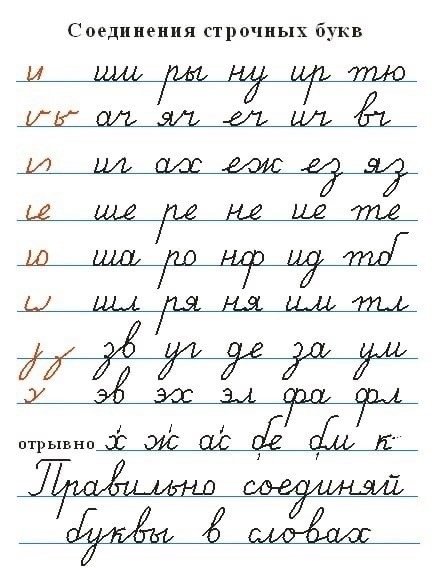 Соединения строчных букв
и ши ры ну ир тю
ач яч еч ич вч
иг ах еж ез яз
ше ре не ие те
ша ро нф ид тб
шл ря ня им тл
зв уг де за ум
эв эх эл фа фл
отрывно х ж ас бе бм к
Правильно соединяй
буквы в словах